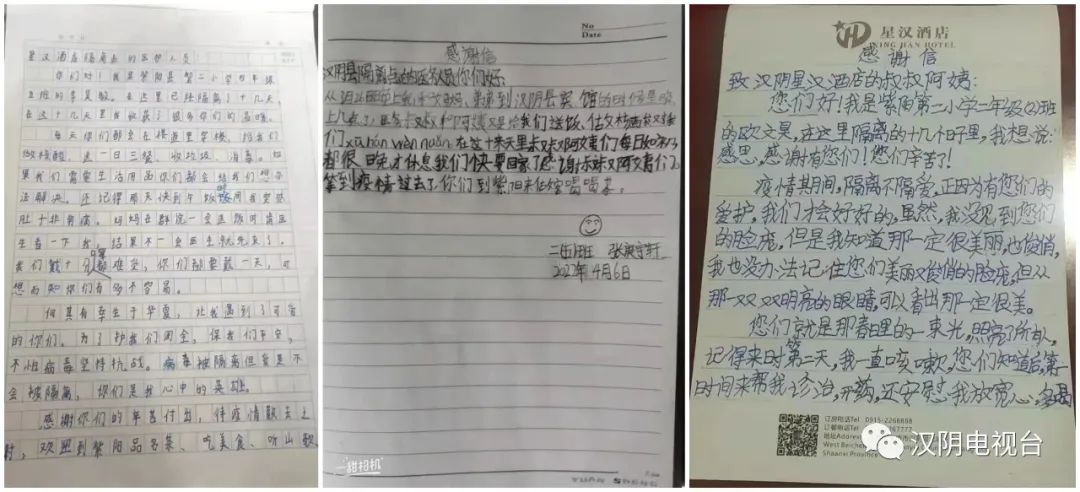 星汉酒店隔离点的医护人员
你们好!我是紫阳县第二小学四年级
五班的李昊敏。在这里已经隔离了十几天,
在这十几天里我收获了很多你们的温暖。
每天你们都会在楼道里穿梭,给我们
做核酸、送一日三餐、收垃圾、消毒。如
果我们需要生活用品你们都会给我们想办
法解决。还记得那天快到午饭时间我突然
肚子非常痛。妈妈在群说
生看一下我,结果不一会医生就来了。
我们戴十分钟都难受,你们却要戴一天,可
想而知你们有多不容易。
何其有幸生于华夏,让我遇到了可爱
的你们。为了护我们周全,保我们平安,
不怕病毒坚持抗战。病毒被隔离但爱是不
会被隔离,你们是我心中的英雄。
感谢你们的辛苦付出,待疫情散去之
时,欢迎到紫阳品名茶、吃美食、听山歌
No
Date
感谢信
汉阴县隔离点的医叔叔你们好
汉阴县宾馆的时候是晚
上九点了但是叔叔和阿姨又是给我们送饭
们xiāohán wēn nuǎn 在这十来天里叔叔阿姨们每日如
都很晚才休息我们快要回家了感谢叔叔阿姨们
等到疫情过去了你们到紫阳来喝喝茶。
二年班 张庚宇轩
2022年4月6日
一甜相机
星汉酒店
XING HAN HOTEL
感谢信
致汉阴星汉酒店的叔叔阿姨:
您们好!我是紫阳第二小学二年级(2)班
的欧文昊,在这里隔离的十几个日子里,我想说:
感恩,感谢有您们!您们辛苦了!
疫情期间,隔离不隔爱,正因为有您们的
爱护,我们才会好好的,虽然,我没见到您们
的脸庞,但是我知道那一定很美丽,也俊俏,
我也没办法记住您们美丽又俊俏的脸庞,但从
那一双双明亮的眼睛,可以看出那一定很美。
您们就是那春日里的一束光,照亮了所有人,
记得来时第二天,我一直咳嗽,您们知道后,第一
时间来帮我诊治,开药,还安慰我放宽心,多喝
订房电话Tel 0915-2266698
订餐电话Tel
地址Address
West Beiche
Shaanxi Province
汉阴电视台